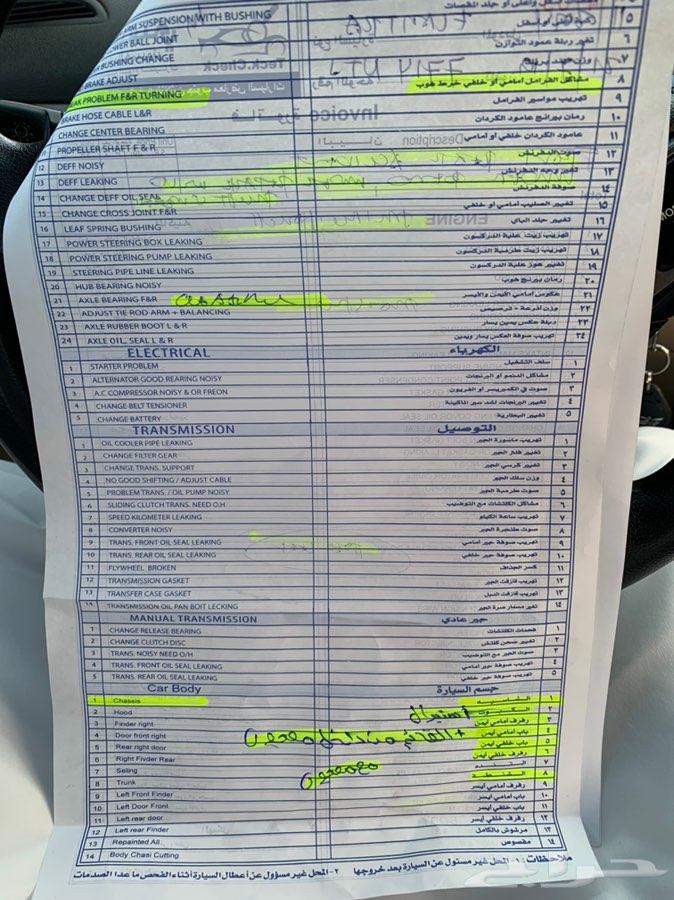 ARM SUSPENSION WITH BUSHING
LOWER BALL JOINT
BUSHING CHANGE تغير ربلة عمود التوازن ٦
BRAKE ADJUST ٧
PROBLEM F&R TURNING مشاكل الفرامل أمامي أو خلفي خرط هوب ٨
BRAKE HOSE CABLE L&R تهريب مواسير الفرامل ٩
CHANGE CENTER BEARING رمان بيرنج عامود الكردان ١٠
PROPELLER SHAFT F & R عامود الكردان خلفي أو أمامي ١١
12 DEFF NOISY صوت الدفرنش ١٢
13 DEFF LEAKING تغيير وجه الدفرنش ١٣
14 CHANGE DEFF OIL SEAL صوفة الدفرنش ١٤
15 CHANGE CROSS JOINT F&R تغيير الصليب أمامي أو خلفي ١٥
16 LEAF SPRING BUSHING تغيير جلد الياي ١٦
17 POWER STEERING BOX LEAKING تهريب زيت علبة الدركسون ١٧
18 POWER STEERING PUMP LEAKING تهريب زيت طرمبة الدركسون ١٨
19 STEERING PIPE LINE LEAKING تغيير هوز علبة الدركسون ١٩
20 HUB BEARING NOISY رمان بيرنج هوب ٢٠
21 AXLE BEARING F&R عكوس أمامي الأيمن والأيسر ٢١
22 ADJUST TIE ROD ARM + BALANCING وزن أذرعة - ترصيص ٢٢
23 AXLE RUBBER BOOT L & R ربلة عكس يمين يسار ٢٣
24 AXLE OIL, SEAL L & R تهريب صوفة العكس يسار ويمين ٢٤
ELECTRICAL الكهرباء
1 STARTER PROBLEM سلف التشغيل ١
2 ALTERNATOR GOOD REARING NOISY مشاكل الدنمو أو البرنجات ٢
3 A.C COMPRESSOR NOISY & OR FREON صوت في الكمبريسر أو الفريون ٣
4 CHANGE BELT TENSIONER تغيير البرنجات لشد سير الماكينة ٤
5 CHANGE BATTERY تغيير البطارية ٥
TRANSMISSION التوصيل
1 OIL COOLER PIPE LEAKING تهريب ماسورة الجير ١
2 CHANGE FILTER GEAR تغيير فلتر الجير ٢
3 CHANGE TRANS. SUPPORT تغيير كرسي الجير ٣
4 NO GOOD SHIFTING / ADJUST CABLE وزن سلك الجير ٤
5 PROBLEM TRANS. / OIL PUMP NOISY صوت طرمبة الجير ٥
6 SLIDING CLUTCH TRANS. NEED O.H مشاكل الكلتشات مع التوضيب ٦
7 SPEED KILOMETER LEAKING تهريب ساعة الكيلو ٧
8 CONVERTER NOISY صوت طنجرة الجير ٨
9 TRANS. FRONT OIL SEAL LEAKING تهريب صوفة جير أمامي ٩
10 TRANS. REAR OIL SEAL LEAKING تهريب صوفة جير خلفي ١٠
11 FLYWHEEL BROKEN كسر الحذاف ١١
12 TRANSMISSION GASKET تهريب قازقت الجير ١٢
13 TRANSFER CASE GASKET تهريب قازقت الدبل ١٣
14 TRANSMISSION OIL PAN BOIT LECKING تغير مسمار صرة الجير ١٤
MANUAL TRANSMISSION جير عادي
1 CHANGE RELEASE BEARING فحمات الكلتشات ١
2 CHANGE CLUTCH DISC تغيير صحن كلتش ٢
3 TRANS. NOISY NEED O/H صوت الجير مع التوضيب ٣
4 TRANS. FRONT OIL SEAL LEAKING تهريب صوفة جير أمامي ٤
5 TRANS. REAR OIL SEAL LEAKING تهريب صوفة جير خلفي ٥
Car Body جسم السيارة
1 Chassis الشاسيه ١
2 Hood الكبوت ٢ استبدال
3 Finder right رفرف أمامي أيمن ٣
4 Door front right باب أمامي أيمن ٤
5 Rear right door باب خلفي أيمن ٥
6 Right Fivder Rear رفرف خلفي أيمن ٦
7 Seling التنده ٧
8 Trunk الشنطة ٨
9 Left Front Finder رفرف أمامي أيسر ٩
10 Left Door Front باب أمامي أيسر ١٠
11 Left rear door باب خلفي أيسر ١١
12 Left rear Finder رفرف خلفي أيسر ١٢
13 Repainted All مرشوش بالكامل ١٣
14 Body Chasi Cutting مقصوص ١٤
ملاحظات: ١- المحل غير مسئول عن السيارة بعد خروجها ٢- المحل غير مسؤول عن أعطال السيارة أثناء الفحص ما عدا الصدمات
حراج